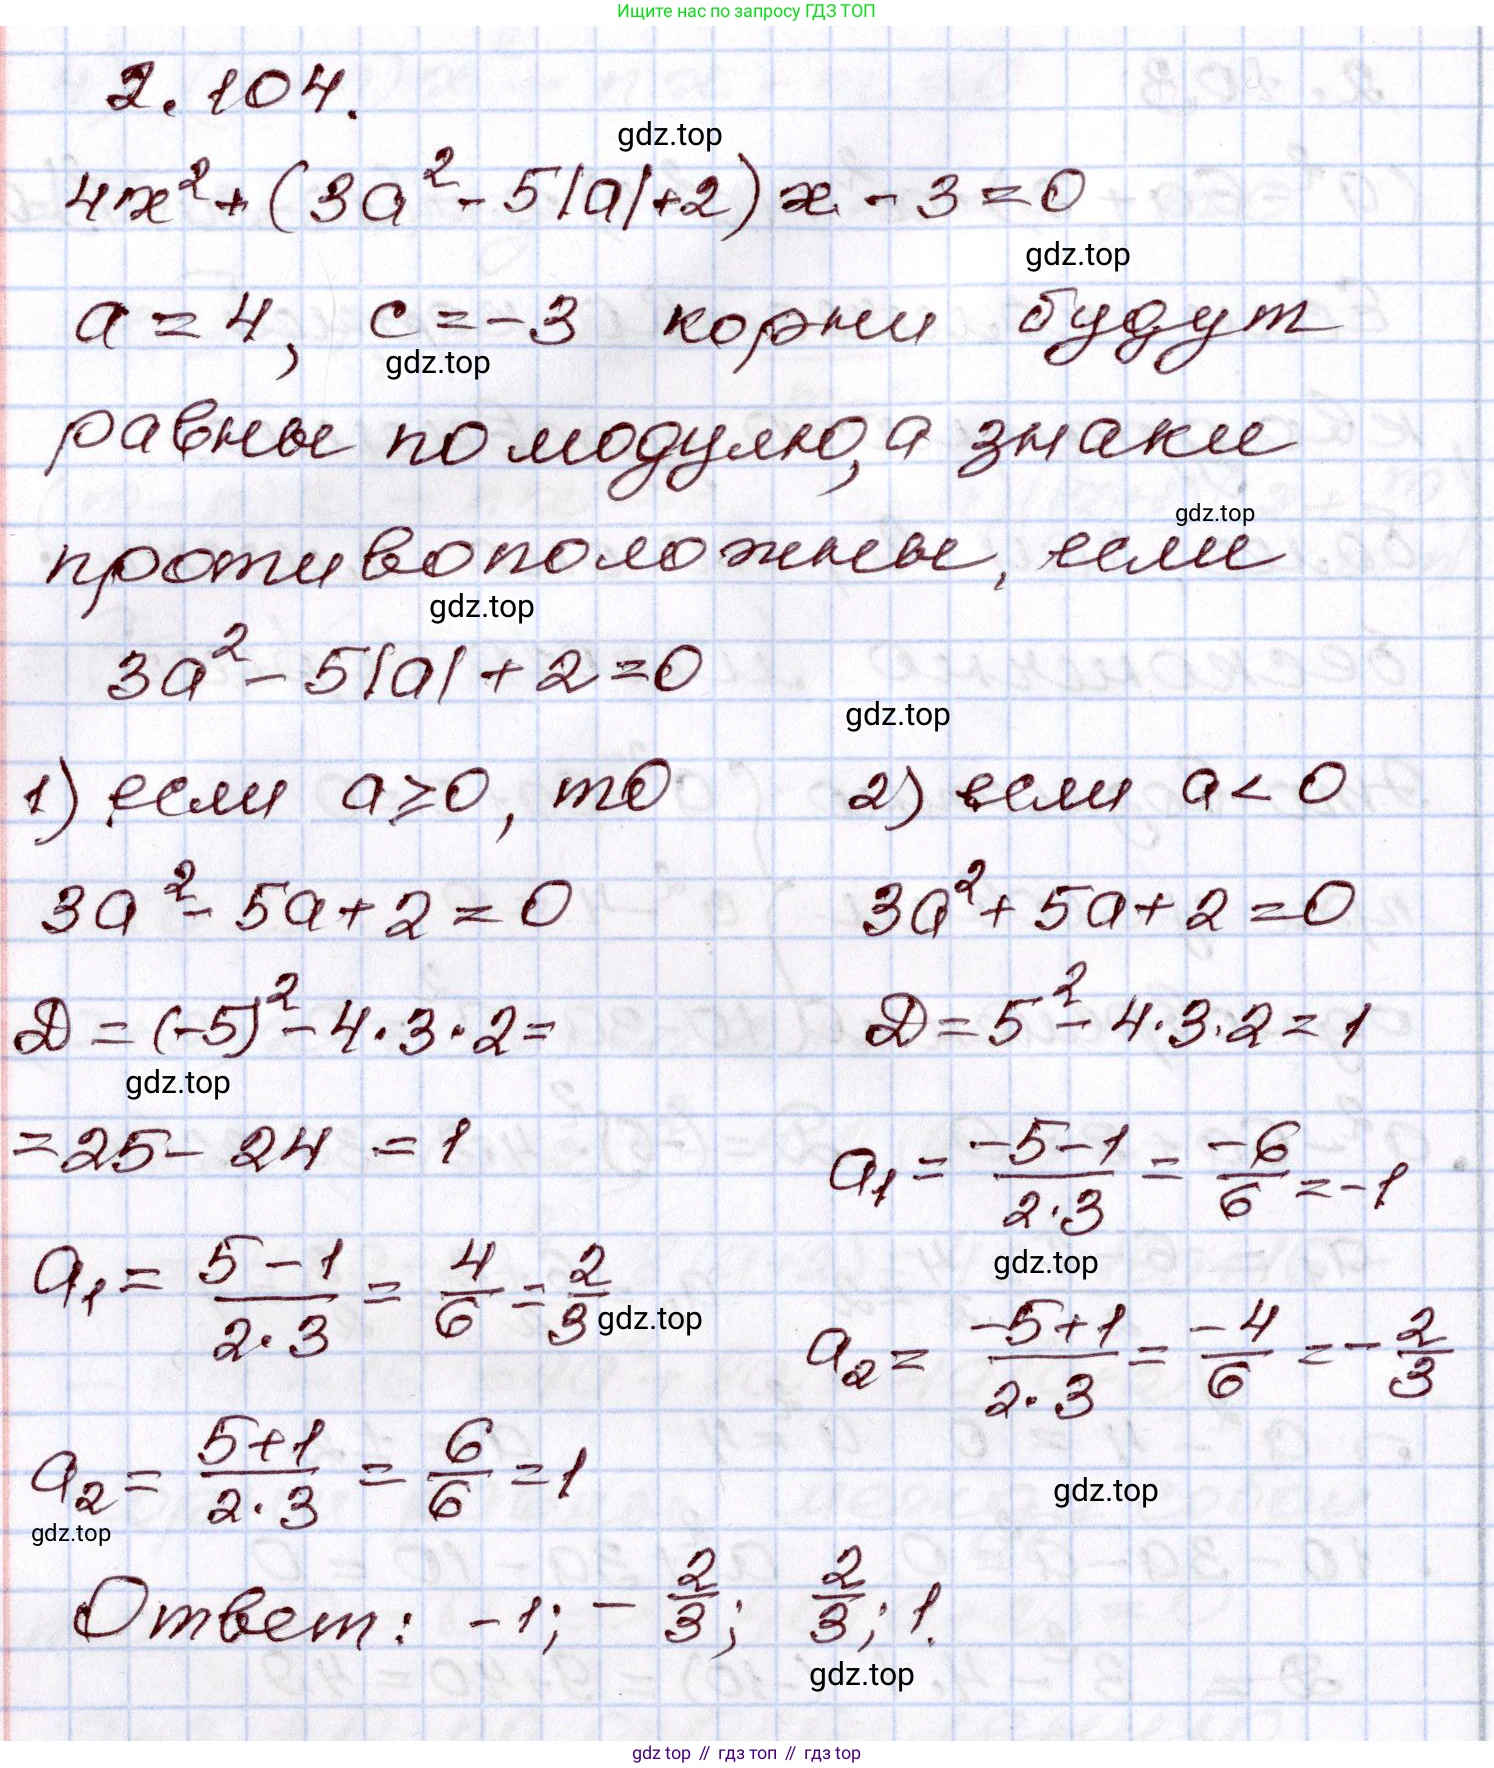 Ищите нас по запросу ГДЗ ТОП
2.104.
gdz.top
4x² + (3a² - 5|a| + 2) x - 3 = 0
gdz.top
a = 4, c = -3 корни будут
gdz.top
равны по модулю, а знаки
gdz.top
противоположные, если
gdz.top
3a² - 5|a| + 2 = 0
gdz.top
1) если a ≥ 0, то
3a² - 5a + 2 = 0
D = (-5)² - 4·3·2 =
gdz.top
= 25 - 24 = 1
a₁ = (5-1)/(2·3) = 4/6 = 2/3
gdz.top
a₂ = (5+1)/(2·3) = 6/6 = 1
gdz.top
2) если a < 0
3a² + 5a + 2 = 0
D = 5² - 4·3·2 = 1
a₁ = (-5-1)/(2·3) = -6/6 = -1
gdz.top
a₂ = (-5+1)/(2·3) = -4/6 = -2/3
gdz.top
Ответ: -1; -2/3; 2/3; 1.
gdz.top
gdz top // гдз топ // gdz top